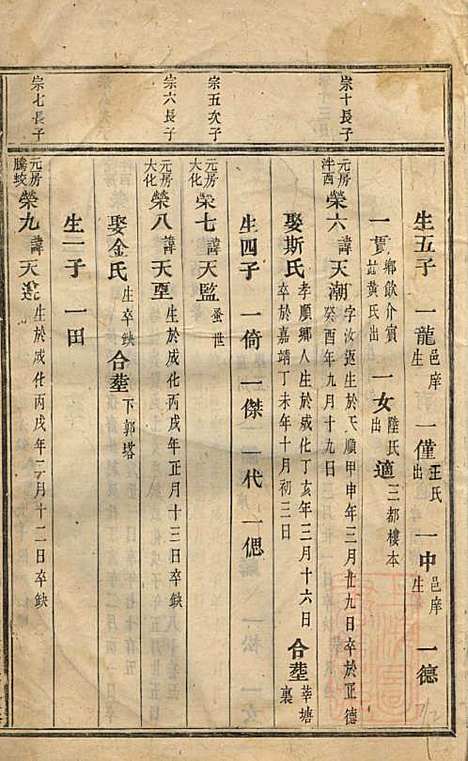 生五子 一龍邑庠生 一僅王氏出 一中邑庠生 一德
一貫鄉飲介賓黃氏出 一女陸氏出適三都樓本
宗十長子
元房泮西榮六諱天潮字汝 生於天順甲申年三月廿九日卒於正德癸酉年九月十九日
娶斯氏孝順鄉人生於成化丁亥年三月十六日卒於嘉靖丁未年十月初三日 合塟 塘裏
生四子 一倚 一傑 一代 一偲
宗五次子
元房大化榮七諱天監蚤世
宗六長子
元房大化榮八諱天 生於成化丙戌年正月十三日卒缺
娶金氏生卒缺合塟下郭塔
生一子 一田
宗七長子
元房騰蛟榮九諱天 生於成化丙戌年 月十二日卒缺